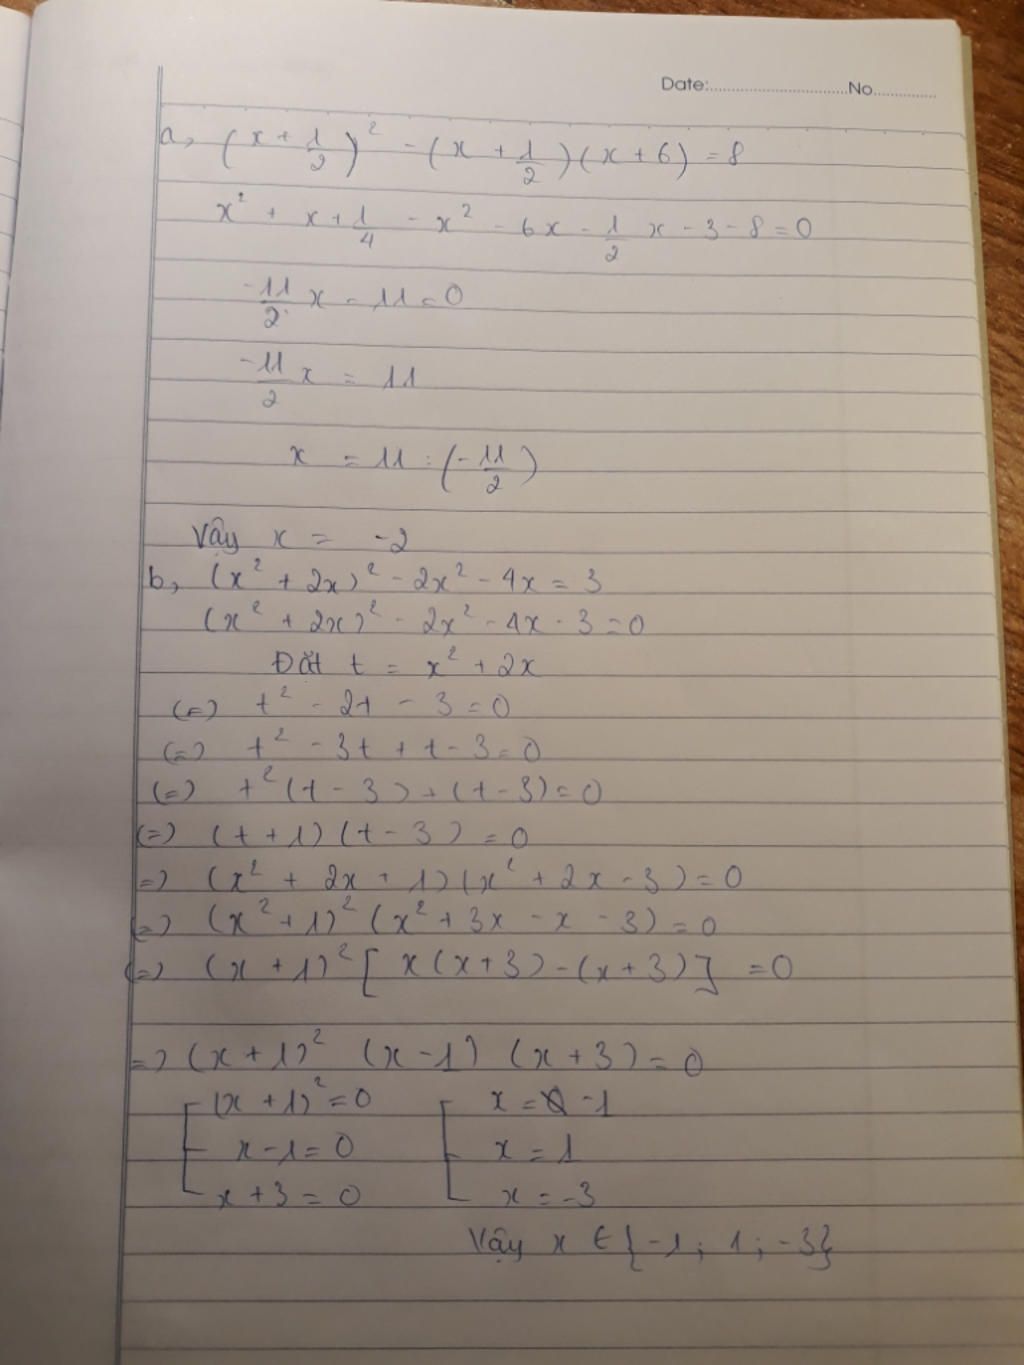 Date:..............................No..............
a, (x + 1/2)² - (x + 1/2)(x + 6) = 8
x² + x + 1/4 - x² - 6x - 1/2 x - 3 - 8 = 0
-11/2 x - 11 = 0
-11/2 x = 11
x = 11 : (-11/2)
Vậy x = -2
b, (x² + 2x)² - 2x² - 4x = 3
(x² + 2x)² - 2x² - 4x - 3 = 0
Đặt t = x² + 2x
(=) t² - 2t - 3 = 0
(=) t² - 3t + t - 3 = 0
(=) t²(t - 3) + (t - 3) = 0
(=) (t + 1)(t - 3) = 0
=) (x² + 2x + 1)(x² + 2x - 3) = 0
(=) (x² + 1)² (x² + 3x - x - 3) = 0
(=) (x + 1)² [x(x + 3) - (x + 3)] = 0
=) (x + 1)² (x - 1) (x + 3) = 0
(x + 1)² = 0 x = -1
x - 1 = 0 x = 1
x + 3 = 0 x = -3
Vậy x ∈ {-1 ; 1 ; -3}